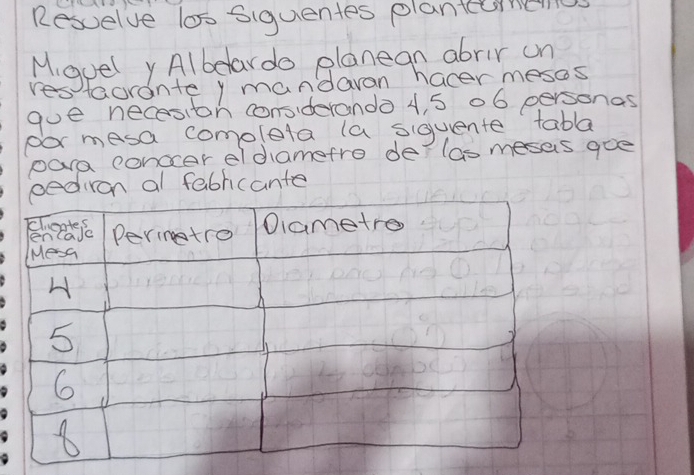 Resuelve los siguientes
Miguel y Albelardo planean abrir un
restaorante y mandaran hacer mesas
que necesitan considerando 4,5 o 6 personas
por mesa completa la siguiente tabla
para conocer el diametro de las mesas que
pediran al fabricante
Perimetro Diametro
en caje
Mesa
4
5
6
8